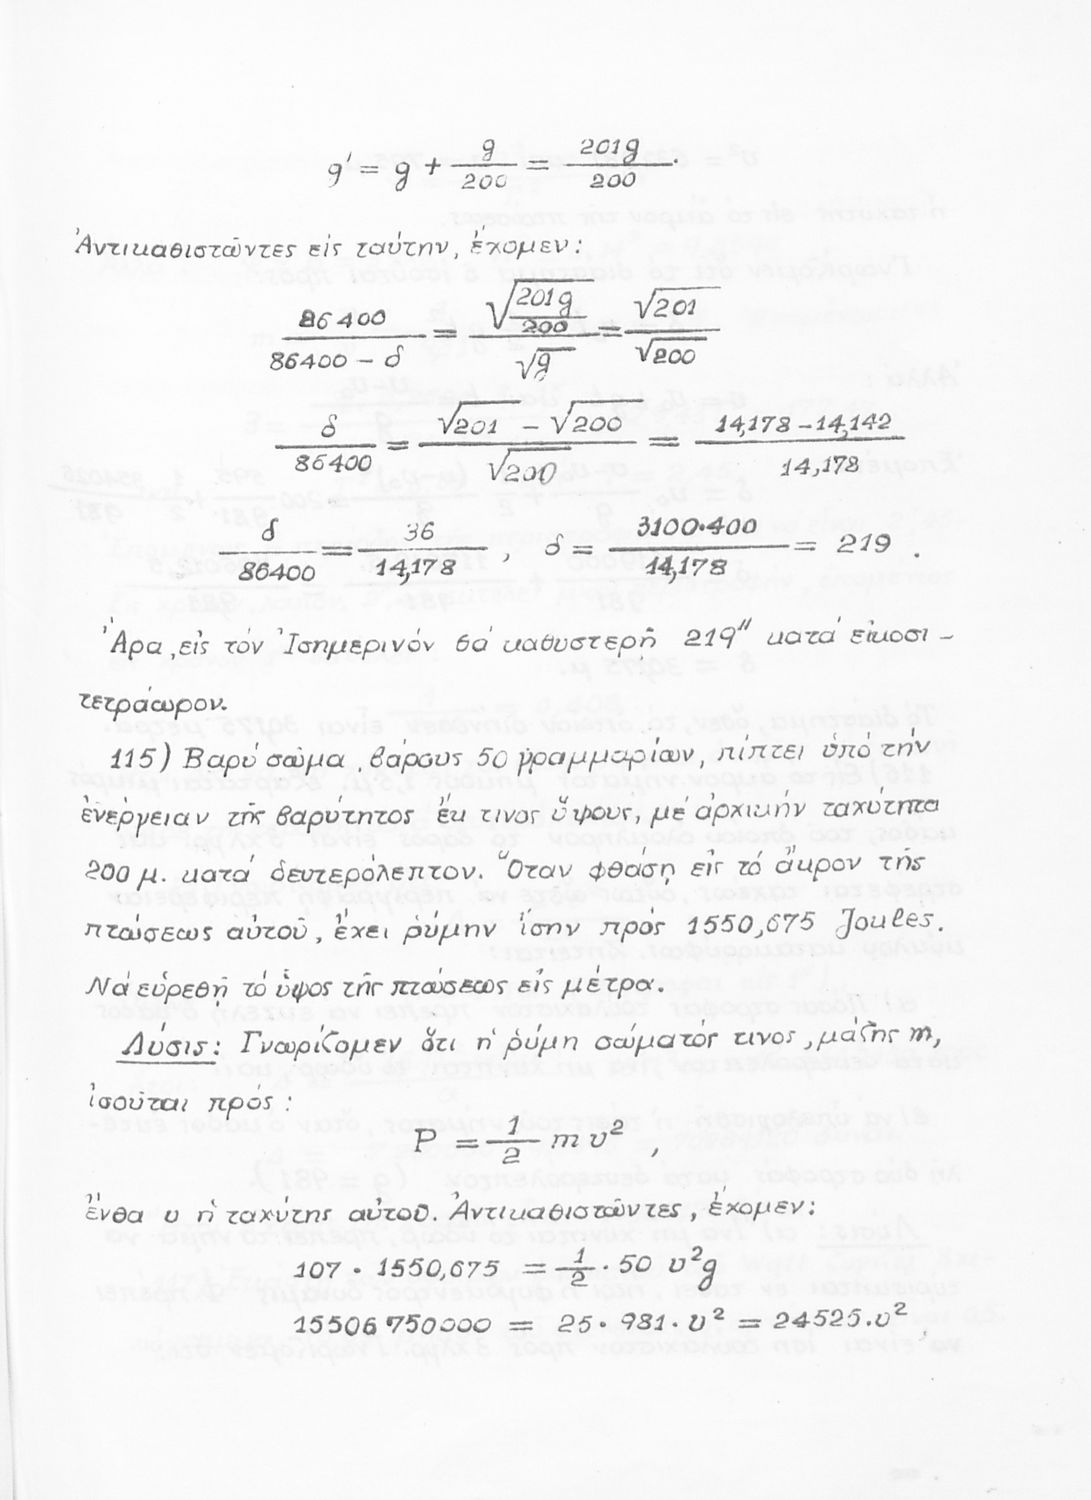 g' = g + g/200 = 201g/200.
Ἀντικαθιστῶντες εἰς ταύτην, ἔχομεν:
86400/(86400 – δ) = √(201g/200)/√g = √201/√200
δ/86400 = (√201 – √200)/√200 = (14,178–14,142)/14,178
δ/86400 = 36/14,178 , δ = 3100·400/14,178 = 219 .
Ἄρα, εἰς τόν Ἰσημερινόν θά καθυστερῇ 219" κατά εἰκοσι –
τετράωρον.
115) Βαρύ σῶμα, βάρους 50 γραμμαρίων, πίπτει ὑπό τήν
ἐνέργειαν τῆς βαρύτητος ἔκ τινος ὕψους, μέ ἀρχικήν ταχύτητα
200 μ. κατά δευτερόλεπτον. Ὅταν φθάσῃ εἰς τό ἄκρον τῆς
πτώσεως αὐτοῦ, ἔχει ρύμην ἴσην πρός 1550,675 Joules.
Νά εὑρεθῇ τό ὕψος τῆς πτώσεως εἰς μέτρα.
Λύσις: Γνωρίζομεν ὅτι ἡ ῥύμη σώματός τινος, μάζης m,
ἰσοῦται πρός:
P = 1/2 m υ² ,
ἔνθα υ ἡ ταχύτης αὐτοῦ. Ἀντικαθιστῶντες, ἔχομεν:
107 · 1550,675 = 1/2 · 50 υ²g
15506750000 = 25 · 981 · υ² = 24525.υ²